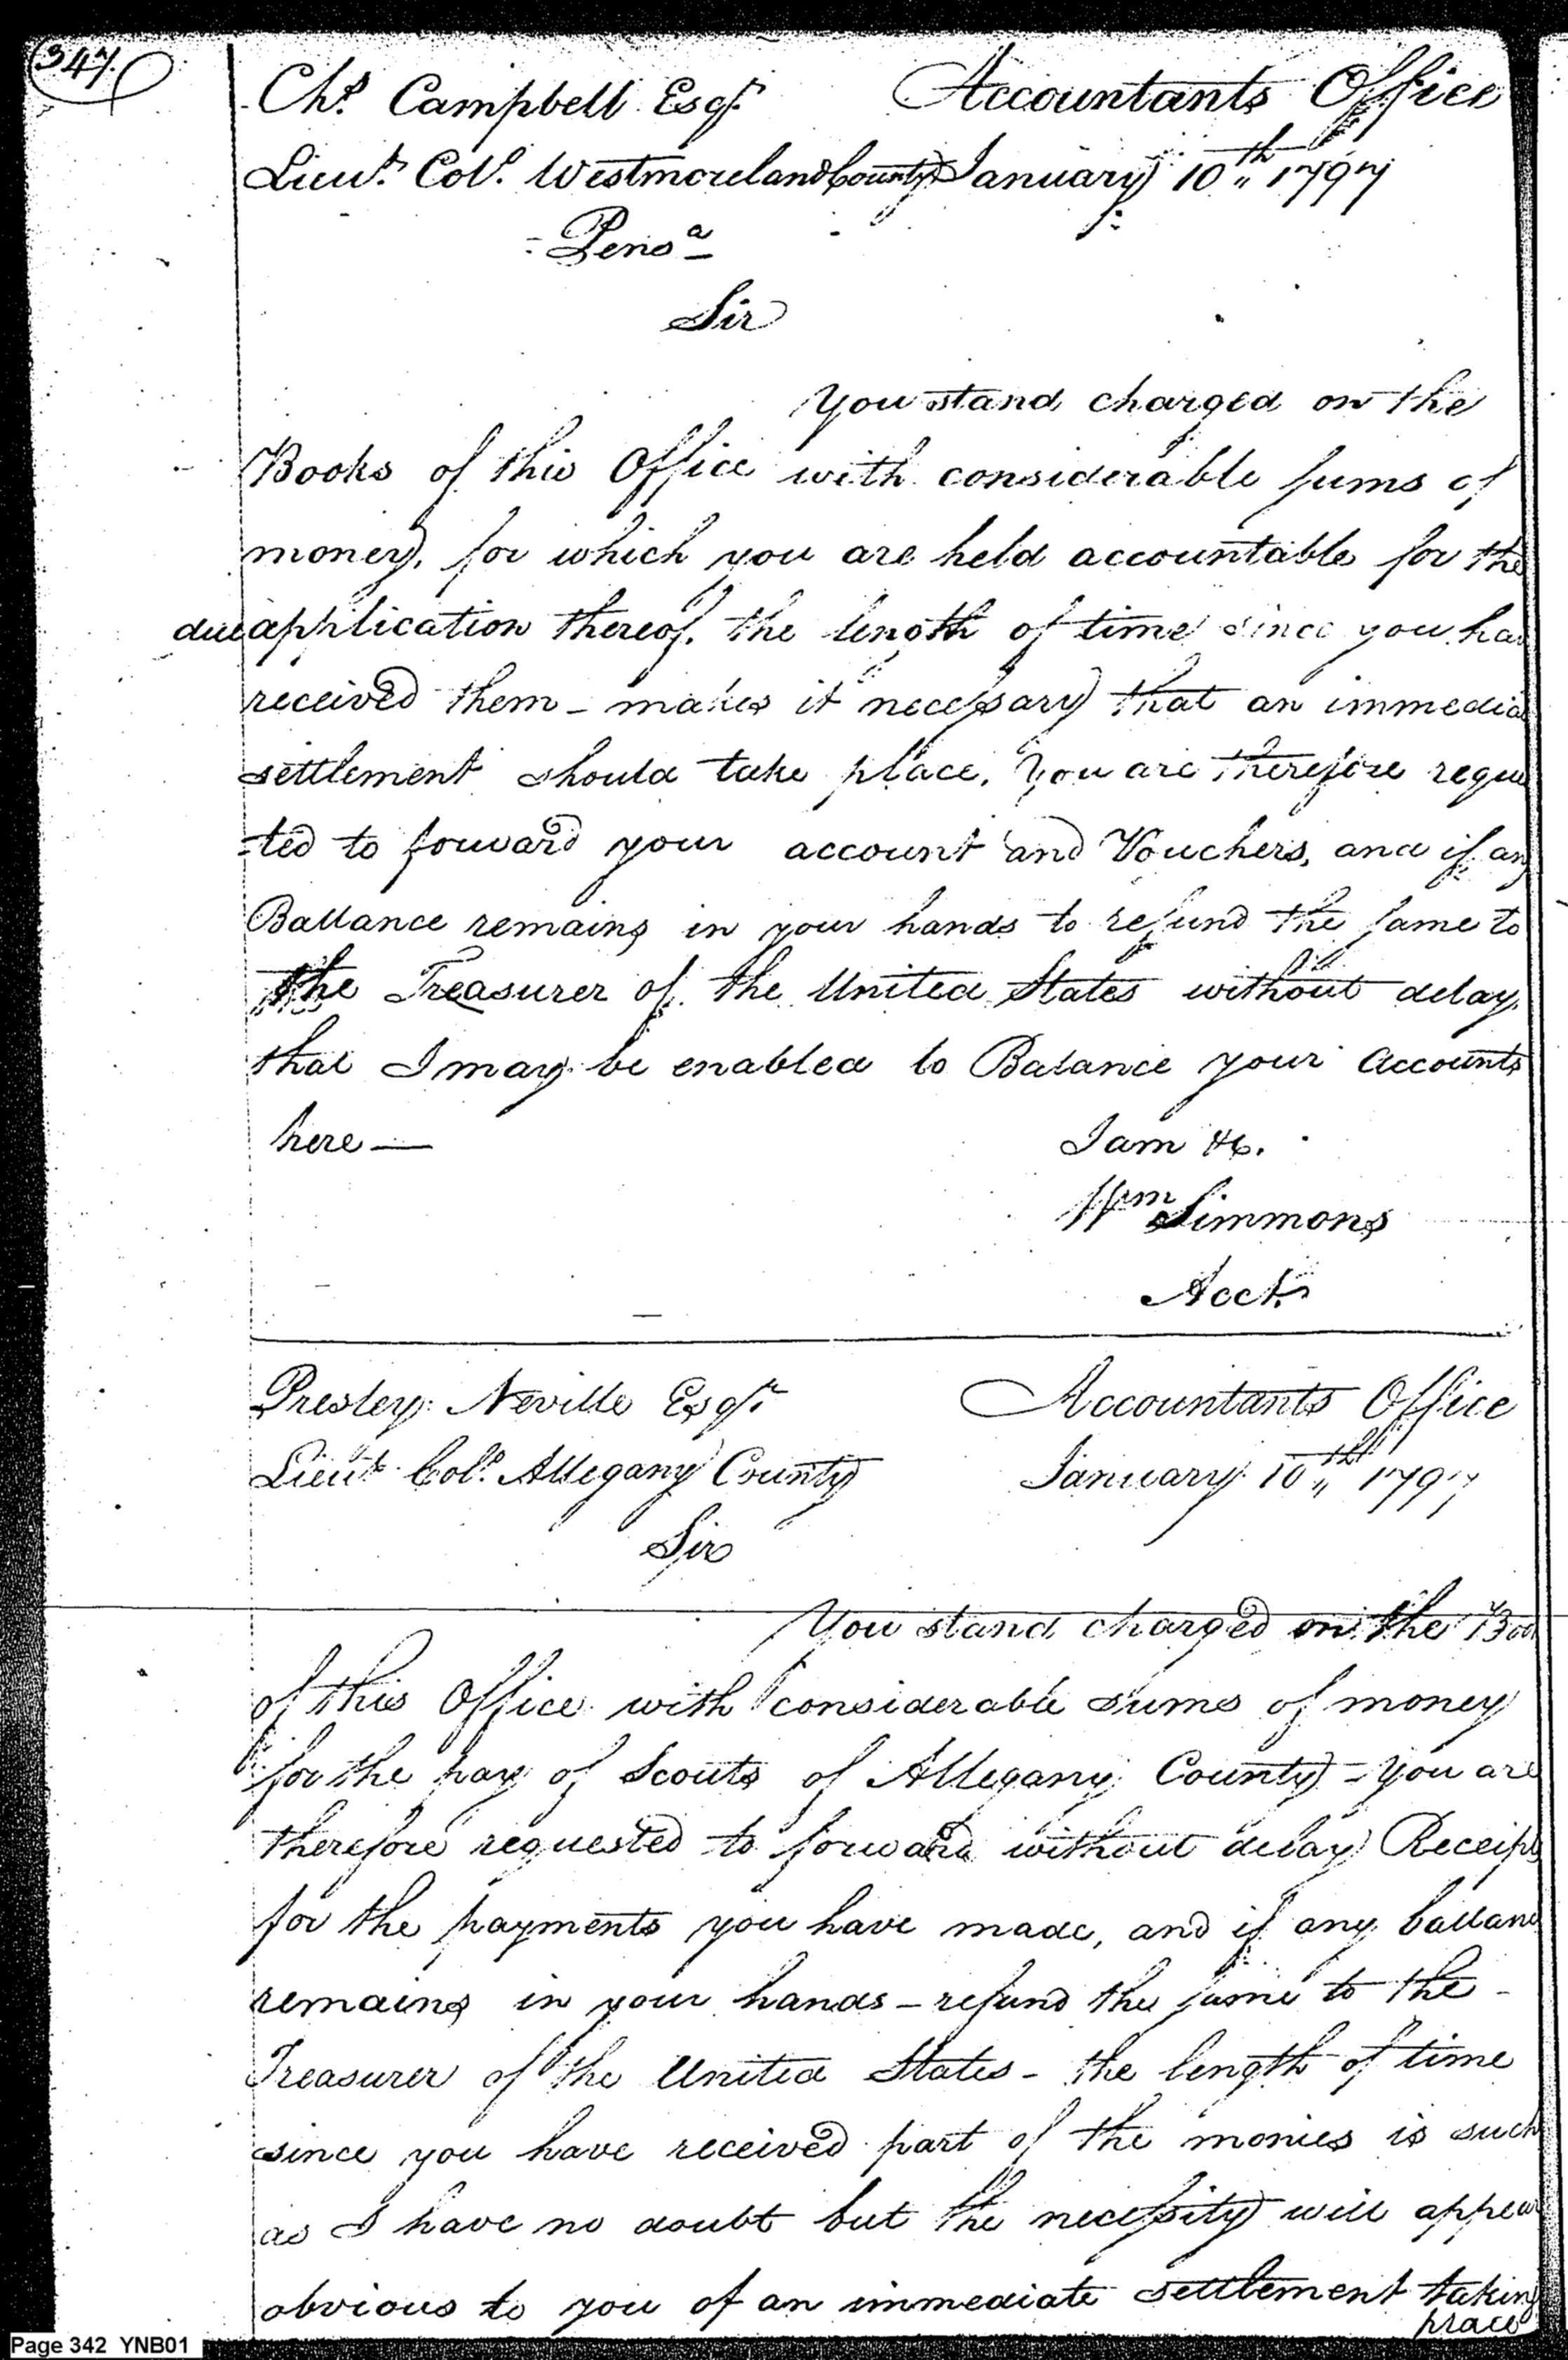 347.
Chs. Campbell Esqr. Accountants Office
Lieut. Col. Westmoreland County January 10th 1797
Pensa
Sir
You stand charged on the
Books of this Office with considerable sums of
money, for which you are held accountable for the
due application thereof. the length of time since you ha
received them - makes it necessary that an immedia
settlement should take place. You are therefore reque
-ted to forward your account and Vouchers, and if any
Ballance remains in your hands to refund the same to
the Treasurer of the United States without delay
that I may be enabled to Balance your Accounts
here — I am &c.
Wm Simmons
Acct.
Presley Neville Esqr. Accountants Office
Lieut. Col. Allegany County January 10th 1797
Sir
You stand charged on the Boo
of this Office with considerable sums of money
for the pay of Scouts of Allegany County - You are
therefore requested to forward without delay Receipts
for the payments you have made, and if any ballanc
remains in your hands - refund the same to the -
Treasurer of the United States - the length of time
since you have received part of the monies is such
as I have no doubt but the necessity will appear
obvious to you of an immediate settlement taking
place
Page 342 YNB01